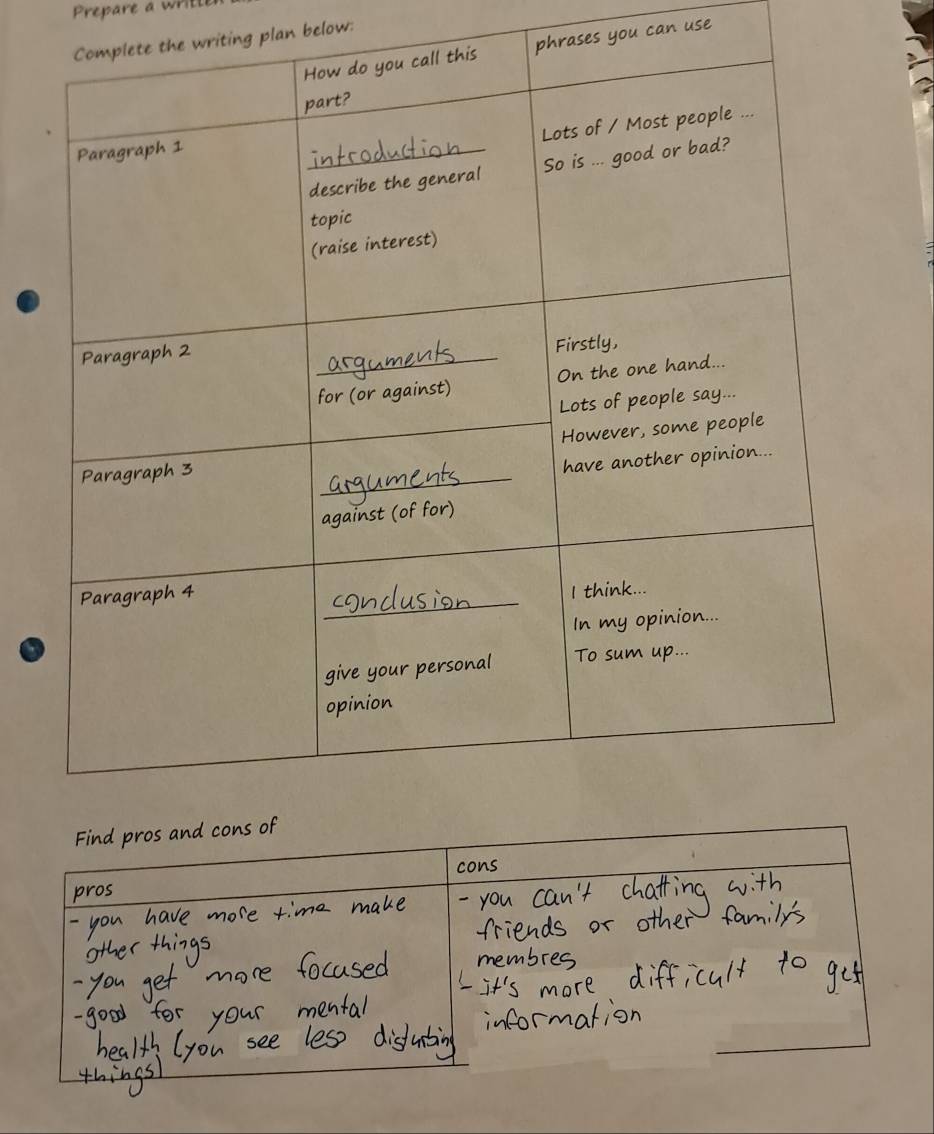 Prepare a written
Complete the writing plan below:
How do you call this
part?
phrases you can use
Paragraph 1
introduction
describe the general
topic
(raise interest)
Lots of / Most people ...
So is ... good or bad?
Paragraph 2
arguments
for (or against)
Firstly,
On the one hand...
Lots of people say...
However, some people
have another opinion...
Paragraph 3
arguments
against (of for)
Paragraph 4
conclusion
give your personal
opinion
I think...
In my opinion...
To sum up...
Find pros and cons of
pros
- you have more time make
other things
- you get more focused
- good for your mental
health (you see less disturbing
things)
cons
- you can't chatting with
friends or other family's
membres
- it's more difficult to get
information